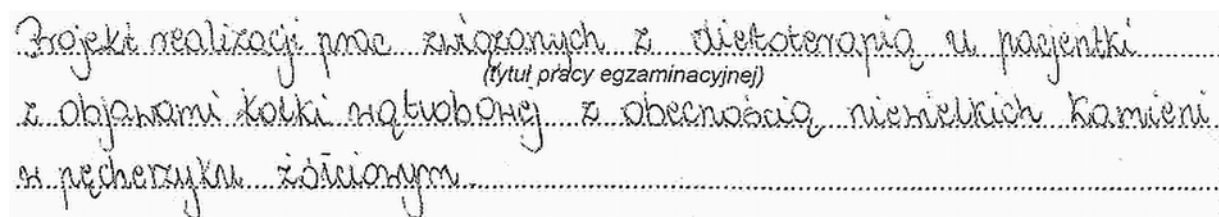 Projekt realizacji prac związanych z dietoterapią u pacjentki
(tytuł pracy egzaminacyjnej)
z objawami kolki wątrobowej z obecnością niewielkich kamieni
w pęcherzyku żółciowym.